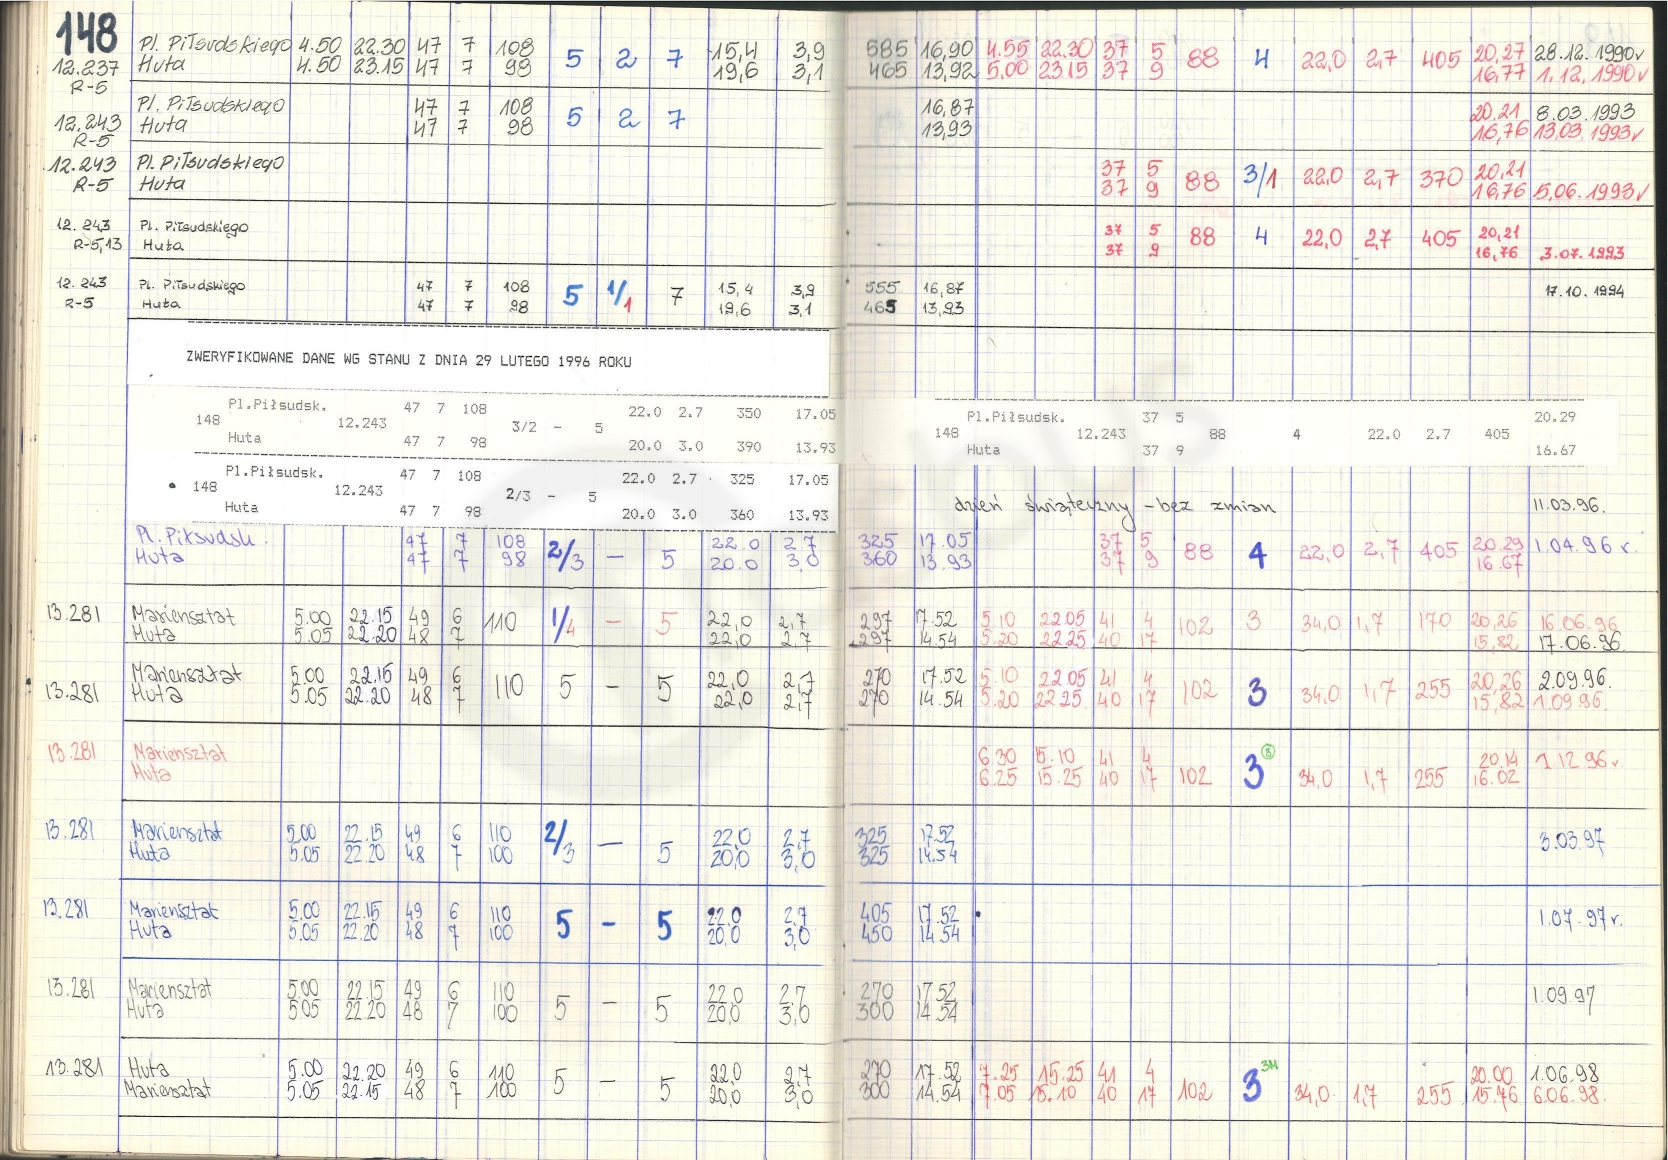 148
Pl. Piłsudskiego 4.50 22.30 47 7 108 5 2 7 15,4 3,9 585 16,90 4.55 22.30 37 5 88 4 22,0 2,7 405 20,27 28.12.1990r
12.237 Huta 4.50 23.15 47 7 98 19,6 3,1 465 13,92 5,00 23.15 37 9 16,77 1.12.1990r
R-5
Pl. Piłsudskiego 47 7 108 5 2 7 16,87 20.21 8.03.1993
12.243 Huta 47 7 98 13,93 16,76 13.03.1993r
R-5
12.243 Pl. Piłsudskiego 37 5 88 3/1 22,0 2,7 370 20,21
R-5 Huta 37 9 16,76 5,06.1993r
12.243 Pl. Piłsudskiego 37 5 88 4 22,0 2,7 405 20,21
R-5,13 Huta 37 9 16,76 3.07.1993
12.243 Pl. Piłsudskiego 47 7 108 5 1/1 7 15,4 3,9 555 16,87 17.10.1994
R-5 Huta 47 7 98 19,6 3,1 465 13,93
ZWERYFIKOWANE DANE WG STANU Z DNIA 29 LUTEGO 1996 ROKU
Pl.Piłsudsk. 47 7 108 22.0 2.7 350 17.05 Pl.Piłsudsk. 37 5 20.29
148 12.243 3/2 - 5 148 12.243 88 4 22.0 2.7 405
Huta 47 7 98 20.0 3.0 390 13.93 Huta 37 9 16.67
Pl.Piłsudsk. 47 7 108 22.0 2.7 325 17.05
148 12.243 2/3 - 5
Huta 47 7 98 20.0 3.0 360 13.93 dzień świąteczny - bez zmian 11.03.96.
Pl. Piłsudsk. 47 7 108 2/3 - 5 22.0 2.7 325 17.05 37 5 88 4 22,0 2,7 405 20.29 1.04.96 r.
Huta 47 7 98 20.0 3,0 360 13.93 37 9 16.67
13.281 Mariensztat 5.00 22.15 49 6 110 1/4 - 5 22,0 2,7 297 17.52 5.10 22.05 41 4 102 3 34,0 1,7 170 20,26 16.06.96
Huta 5.05 22.20 48 7 22,0 2.7 297 14.54 5.20 22.25 40 17 15,82 17.06.96.
Mariensztat 5.00 22.15 49 6 110 5 - 5 22,0 2,7 270 17.52 5.10 22.05 41 4 102 3 34,0 1,7 255 20,26 2.09.96.
13.281 Huta 5.05 22.20 48 7 22,0 2,7 270 14.54 5.20 22.25 40 17 15,82 1.09.96.
13.281 Mariensztat 6.30 15.10 41 4 3 8 20.14 1.12.96r
Huta 6.25 15.25 40 17 102 34,0 1,7 255 16.02
13.281 Mariensztat 5.00 22.15 49 6 110 2/3 - 5 22,0 2,7 325 17.52 3.03.97
Huta 5.05 22.20 48 7 100 20,0 3,0 325 14.54
13.281 Mariensztat 5.00 22.15 49 6 110 5 - 5 22.0 2.7 405 17.52 1.07.97r.
Huta 5.05 22.20 48 7 100 20,0 3,0 450 14.54
13.281 Mariensztat 5.00 22.15 49 6 110 5 - 5 22.0 2.7 270 17.52 1.09.97
Huta 5.05 22.20 48 7 100 20,0 3,0 300 14.54
13.281 Huta 5.00 22.20 49 6 110 5 - 5 22,0 2,7 270 17.52 7.25 15.25 41 4 102 3 3M 34,0 1,7 255 20.00 1.06.98
Mariensztat 5.05 22.15 48 7 100 20,0 3,0 300 14.54 7.05 15.10 40 17 15.76 6.06.98.